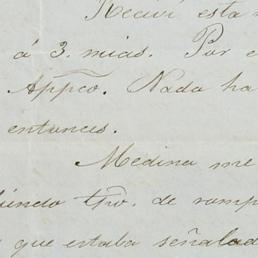 Recivi esta
á 3. mias. Por
Appco. Nada ha
entonces.
Medina me
tpo. de romp
que estaba señalad